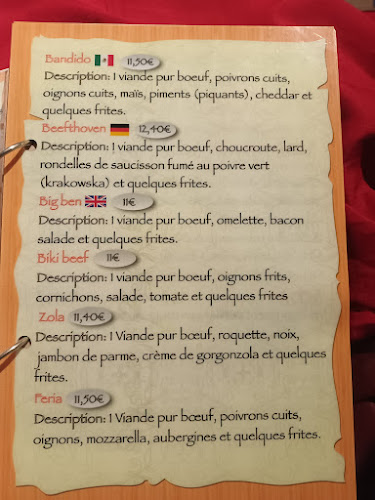 Bandido 11,50€
Description: 1 viande pur boeuf, poivrons cuits,
oignons cuits, maïs, piments (piquants), cheddar et
quelques frites.
Beefthoven 12,40€
Description: 1 viande pur boeuf, choucroute, lard,
rondelles de saucisson fumé au poivre vert
(krakowska) et quelques frites.
Big ben 11€
Description: 1 viande pur boeuf, omelette, bacon
salade et quelques frites.
Biki beef 11€
Description: 1 viande pur boeuf, oignons frits,
cornichons, salade, tomate et quelques frites
Zola 11,40€
Description: 1 Viande pur bœuf, roquette, noix,
jambon de parme, crème de gorgonzola et quelques
frites.
Feria 11,50€
Description: 1 Viande pur bœuf, poivrons cuits,
oignons, mozzarella, aubergines et quelques frites.